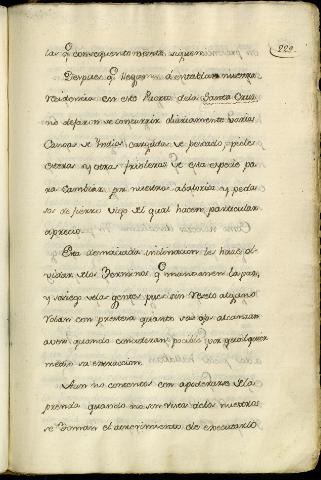 229
las q.e consequentemente siguen.
Despues q.e llegamos á entablar nuestra
residencia en este Puerto de la Santa Cruz
no dejaron de concurrir diariamente varias
Canoas de Indios cargadas de pescado, pieles
esteras y otras frioleras de esta especie pa
ra cambiar por nuestros abalorios y peda
sos de fierro viejo del qual hacen particular
aprecio.
Esta demasiada inclinacion les hace ol-
vidar los terminos q.e mantienen la paz,
y sosiego de las gentes pues sin reselo alguno
roban con presteza quanto sus ojos alcanzan
a ver quando consideran posible por qualquier
medio su extraccion.
Aun no contentos con apoderarse de la
prenda quando no son vistos de los nuestros
se toman el atrevimiento de executarlo